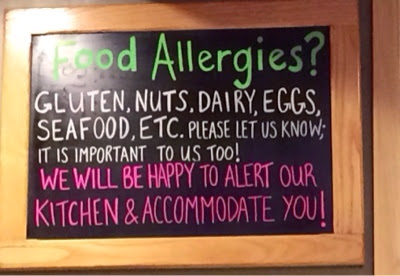 Food Allergies?
GLUTEN, NUTS, DAIRY, EGGS,
SEAFOOD, ETC. PLEASE LET US KNOW;
IT IS IMPORTANT TO US TOO!
WE WILL BE HAPPY TO ALERT OUR
KITCHEN & ACCOMMODATE YOU!